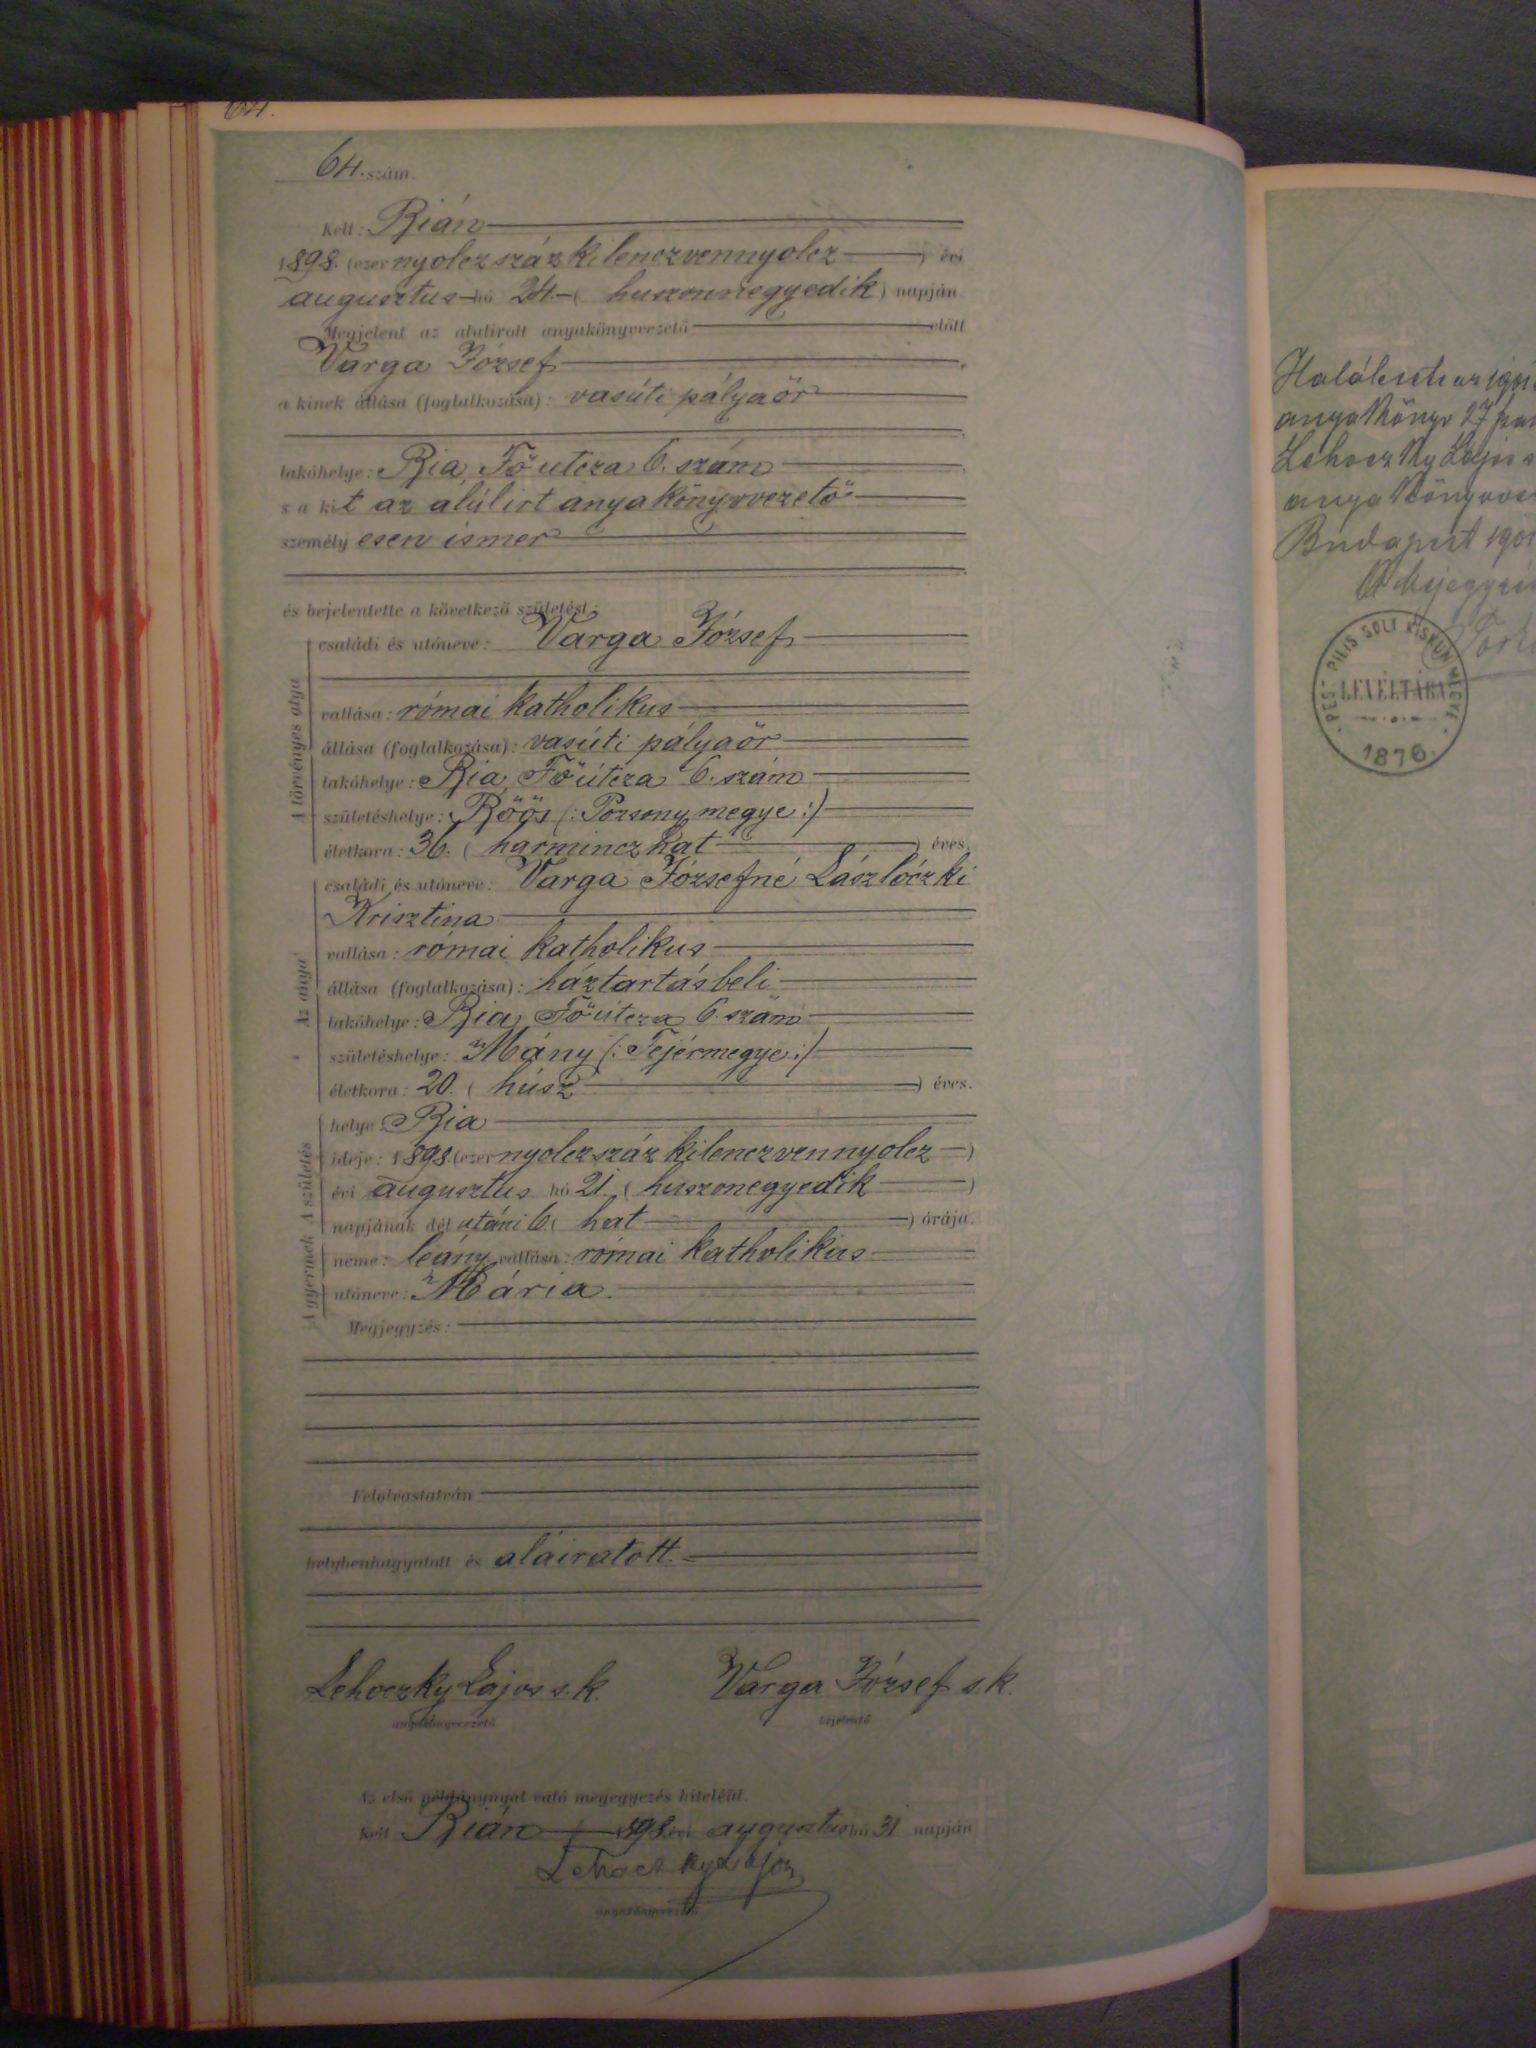 64.
64. szám.
Kelt: Bián
1898. (ezer nyolczszázkilenczvennyolcz) évi
augusztus hó 24. (huszonnegyedik) napján
Megjelent az alulirott anyakönyvvezető előtt
Varga József
a kinek állása (foglalkozása): vasúti pályaőr
lakóhelye: Bia, Fő utcza 6. szám
s a kit az alúlirt anyakönyvvezető
személyesen ismer
és bejelentette a következő születést:
A törvényes atya
családi és utóneve: Varga József
vallása: római katholikus
állása (foglalkozása): vasúti pályaőr
lakóhelye: Bia, Fő útcza 6. szám
születéshelye: Bőős (: Pozsony megye :)
életkora: 36. (harminczhat) éves.
Az anya
családi és utóneve: Varga Józsefné Lászlóczki
Krisztina
vallása: római katholikus
állása (foglalkozása): háztartásbeli
lakóhelye: Bia, Fő útcza 6. szám
születéshelye: Mány (: Fejérmegye :)
életkora: 20. (húsz) éves.
A gyermek A születés
helye: Bia
ideje: 1898. (ezer nyolczszáz kilenczvennyolcz)
évi augusztus hó 21. (huszonegyedik)
napjának dél utáni 6. (hat) órája.
neme: leány vallása: római katholikus
utóneve: Mária.
Megjegyzés:
Felolvastatván
helybenhagyatott és aláiratott.
Lehoczky Lajos s. k. Varga József s. k.
anyakönyvvezető bejelentő
Az első példánynyal való megegyezés hiteléül.
Kelt Bián 1898. évi augusztus hó 31 napján
Lehoczky Lajos
anyakönyvvezető
anyakönyv 27
Lehoczky Lajos
Budapest
PEST PILIS SOLT KISKUN MEGYE
LEVÉLTÁRA
1876.